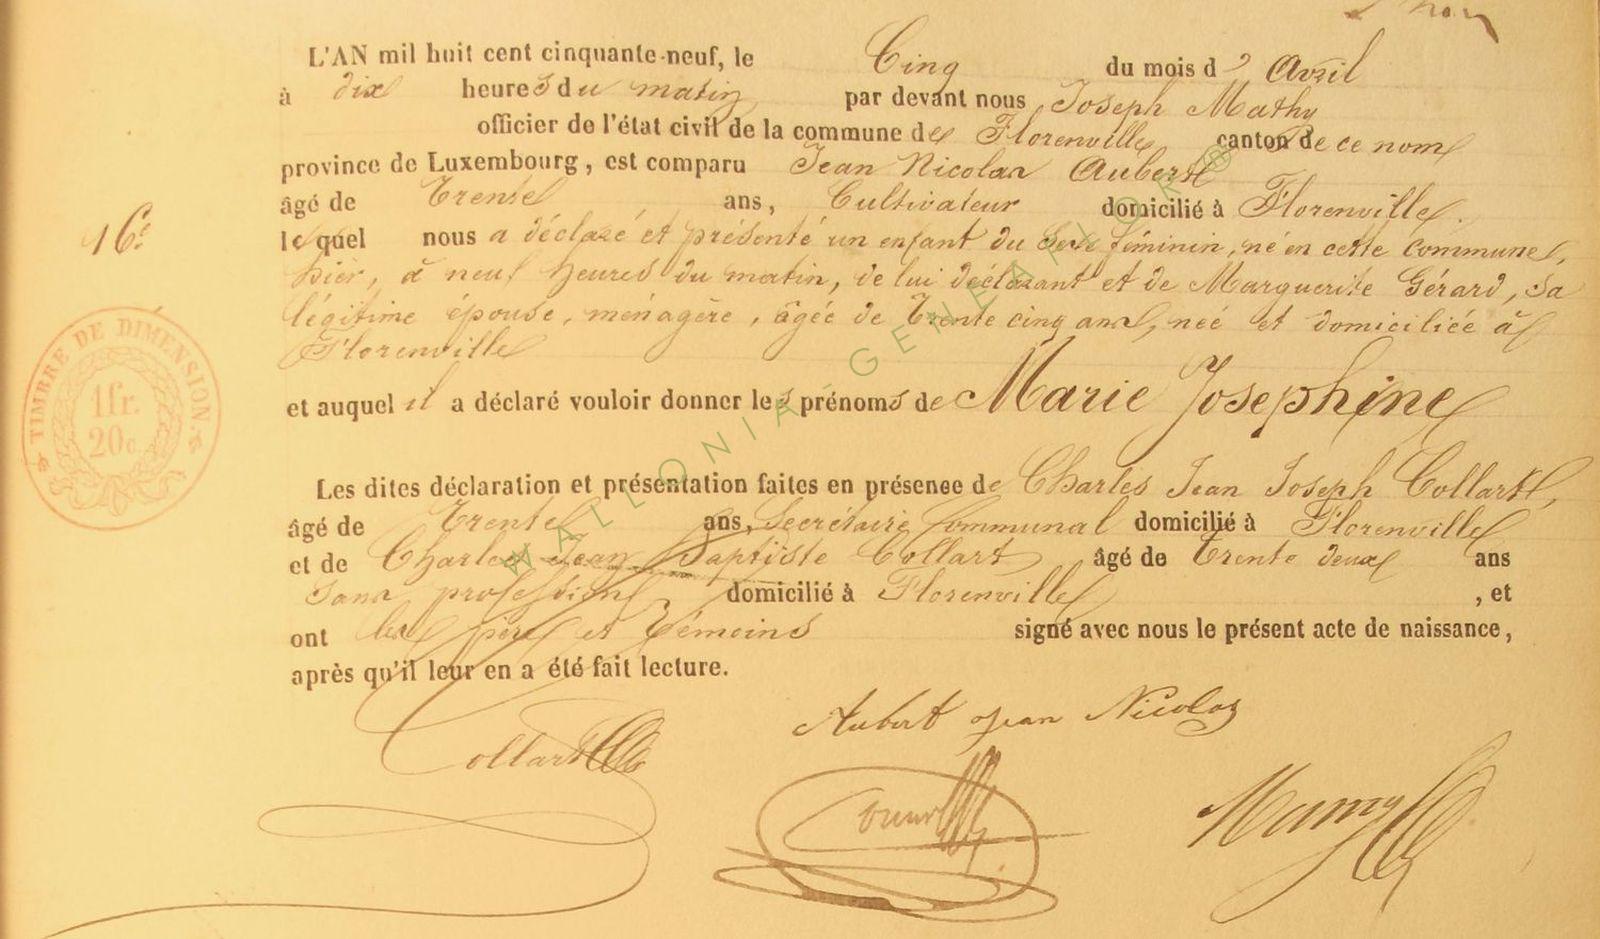 L'AN mil huit cent cinquante-neuf, le Cinq du mois d'Avril
à dix heures du matin par devant nous Joseph Mathy
officier de l'état civil de la commune de Florenville canton de ce nom
province de Luxembourg, est comparu Jean Nicolas Aubert
âgé de Trente ans, Cultivateur domicilié à Florenville.
16e
lequel nous a déclaré et présenté un enfant du sexe féminin, né en cette commune,
hier, à neuf heures du matin, de lui déclarant et de Marguerite Gérard, sa
légitime épouse, ménagère, âgée de Trente cinq ans, née et domiciliée à
Florenville
et auquel il a déclaré vouloir donner les prénoms de Marie Josephine
TIMBRE DE DIMENSION.
1fr.
20c.
Les dites déclaration et présentation faites en présence de Charles Jean Joseph Collart,
âgé de Trente ans, Secrétaire Communal domicilié à Florenville
et de Charles Jean Baptiste Collart âgé de Trente deux ans
Sans profession domicilié à Florenville, et
ont les père et Témoins signé avec nous le présent acte de naissance,
après qu'il leur en a été fait lecture.
Aubert Jean Nicolas
Collart
WALLONIA GENEALOR®